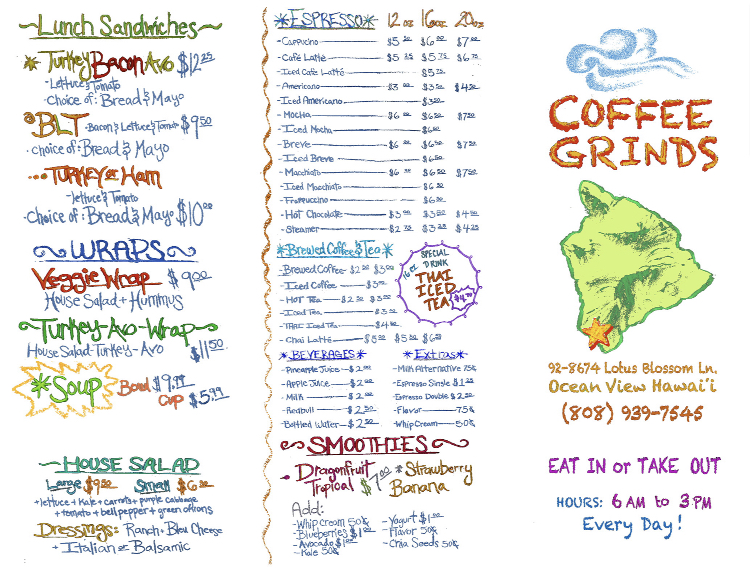 ~Lunch Sandwiches~
* Turkey Bacon Avo $12.25
- Lettuce & Tomato
- Choice of: Bread & Mayo
BLT - Bacon & Lettuce & Tomato $9.50
- choice of: Bread & Mayo
... TURKEY or Ham
- lettuce & Tomato
- Choice of: Bread & Mayo $10.00
WRAPS
Veggie Wrap $9.00
House Salad + Hummus
~Turkey-Avo-Wrap~
House Salad-Turkey-Avo $11.50
*Soup Bowl $9.99
Cup $5.99
~HOUSE SALAD
Large $9.50 Small $6.50
+ lettuce + Kale + carrots + purple cabbage
+ tomato + bell pepper + green onions
Dressings: Ranch + Bleu Cheese
+ Italian or Balsamic
*ESPRESSO* 12oz 16oz 20oz
- Cappucino $5.50 $6.00 $7.00
- Café Latte $5.25 $5.75 $6.75
- Iced Cafe Latté $5.75
- Americano $3.00 $3.50 $4.50
- Iced Americano $3.50
- Mocha $6.00 $6.50 $7.50
- Iced Mocha $6.50
- Breve $6.00 $6.50 $7.50
- Iced Breve $6.50
- Macchiato $6.00 $6.50 $7.50
- Iced Macchiato $6.50
- Frappuccino $6.50
- Hot Chocolate $3.00 $3.50 $4.50
- Steamer $2.75 $3.25 $4.25
*Brewed Coffee & Tea*
- Brewed Coffee - $2.50 $3.00
- Iced Coffee - $3.00
- HOT Tea - $2.50 $3.00
- Iced Tea - $3.00
- THAI Iced Tea - $4.50
- Chai Latté $5.00 $5.50 $6.50
16 oz SPECIAL DRINK
THAI
ICED
TEA $4.70
*BEVERAGES*
- Pineapple Juice - $2.00
- Apple Juice - $2.00
- Milk - $2.00
- Redbull - $2.50
- Bottled Water - $2.50
*Extras*
- Milk Alternative 75¢
- Espresso Single $1.25
- Espresso Double $2.50
- Flavor - 75¢
- Whip Cream - 50¢
SMOOTHIES
• Dragonfruit Tropical $7.00 * Strawberry Banana
Add:
- Whip Cream 50¢
- Blueberries $1.00
- Avocado $1.00
- Kale 50¢
- Yogurt $1.00
- Flavor 50¢
- Chia Seeds 50¢
COFFEE
GRINDS
92-8674 Lotus Blossom Ln.
Ocean View Hawai'i
(808) 939-7545
EAT IN or TAKE OUT
HOURS: 6 AM to 3 PM
Every Day!